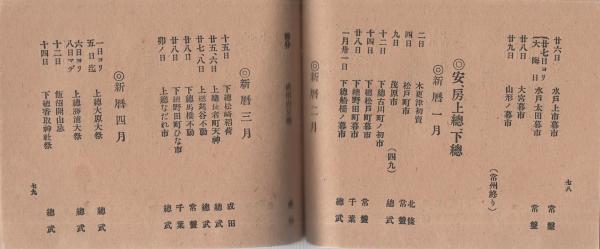 七八
廿六日 水戸上市暮市 常盤
(廿七日ヨリ大晦日) 水戸太田暮市
廿八日 大宮暮市
廿九日 山形ノ暮市 常盤
(常州終り)
◎安、房上總下總
◎新暦一月
二日 木更津初賣 北條
四日 松戸町市 常盤
九日 茂原市 (四九)
十二日 下總古川町ノ初市 總武
十四日 下總松戸町暮市 常盤
廿八日 下總野田町暮市
一月卅一日 下總船橋ノ暮市 總武
◎新暦二月
十五日 下總松崎稻荷 成田
廿五、六日 上總長者町天神 總武
廿七、八日 上總笠谷不動 總武
廿八日 下總馬橋不動 常盤
廿八日 下總野田町ひな市 千葉
卯ノ日 上總なだれ市 總武
◎新暦三月
◎新暦四月
一日ヨリ五日迄 上總大原大祭 總武
六日ヨリ八日マデ 上總勝浦大祭 總武
十二日 飯沼開山忌
十四日 下總香取神社祭 總武
七九